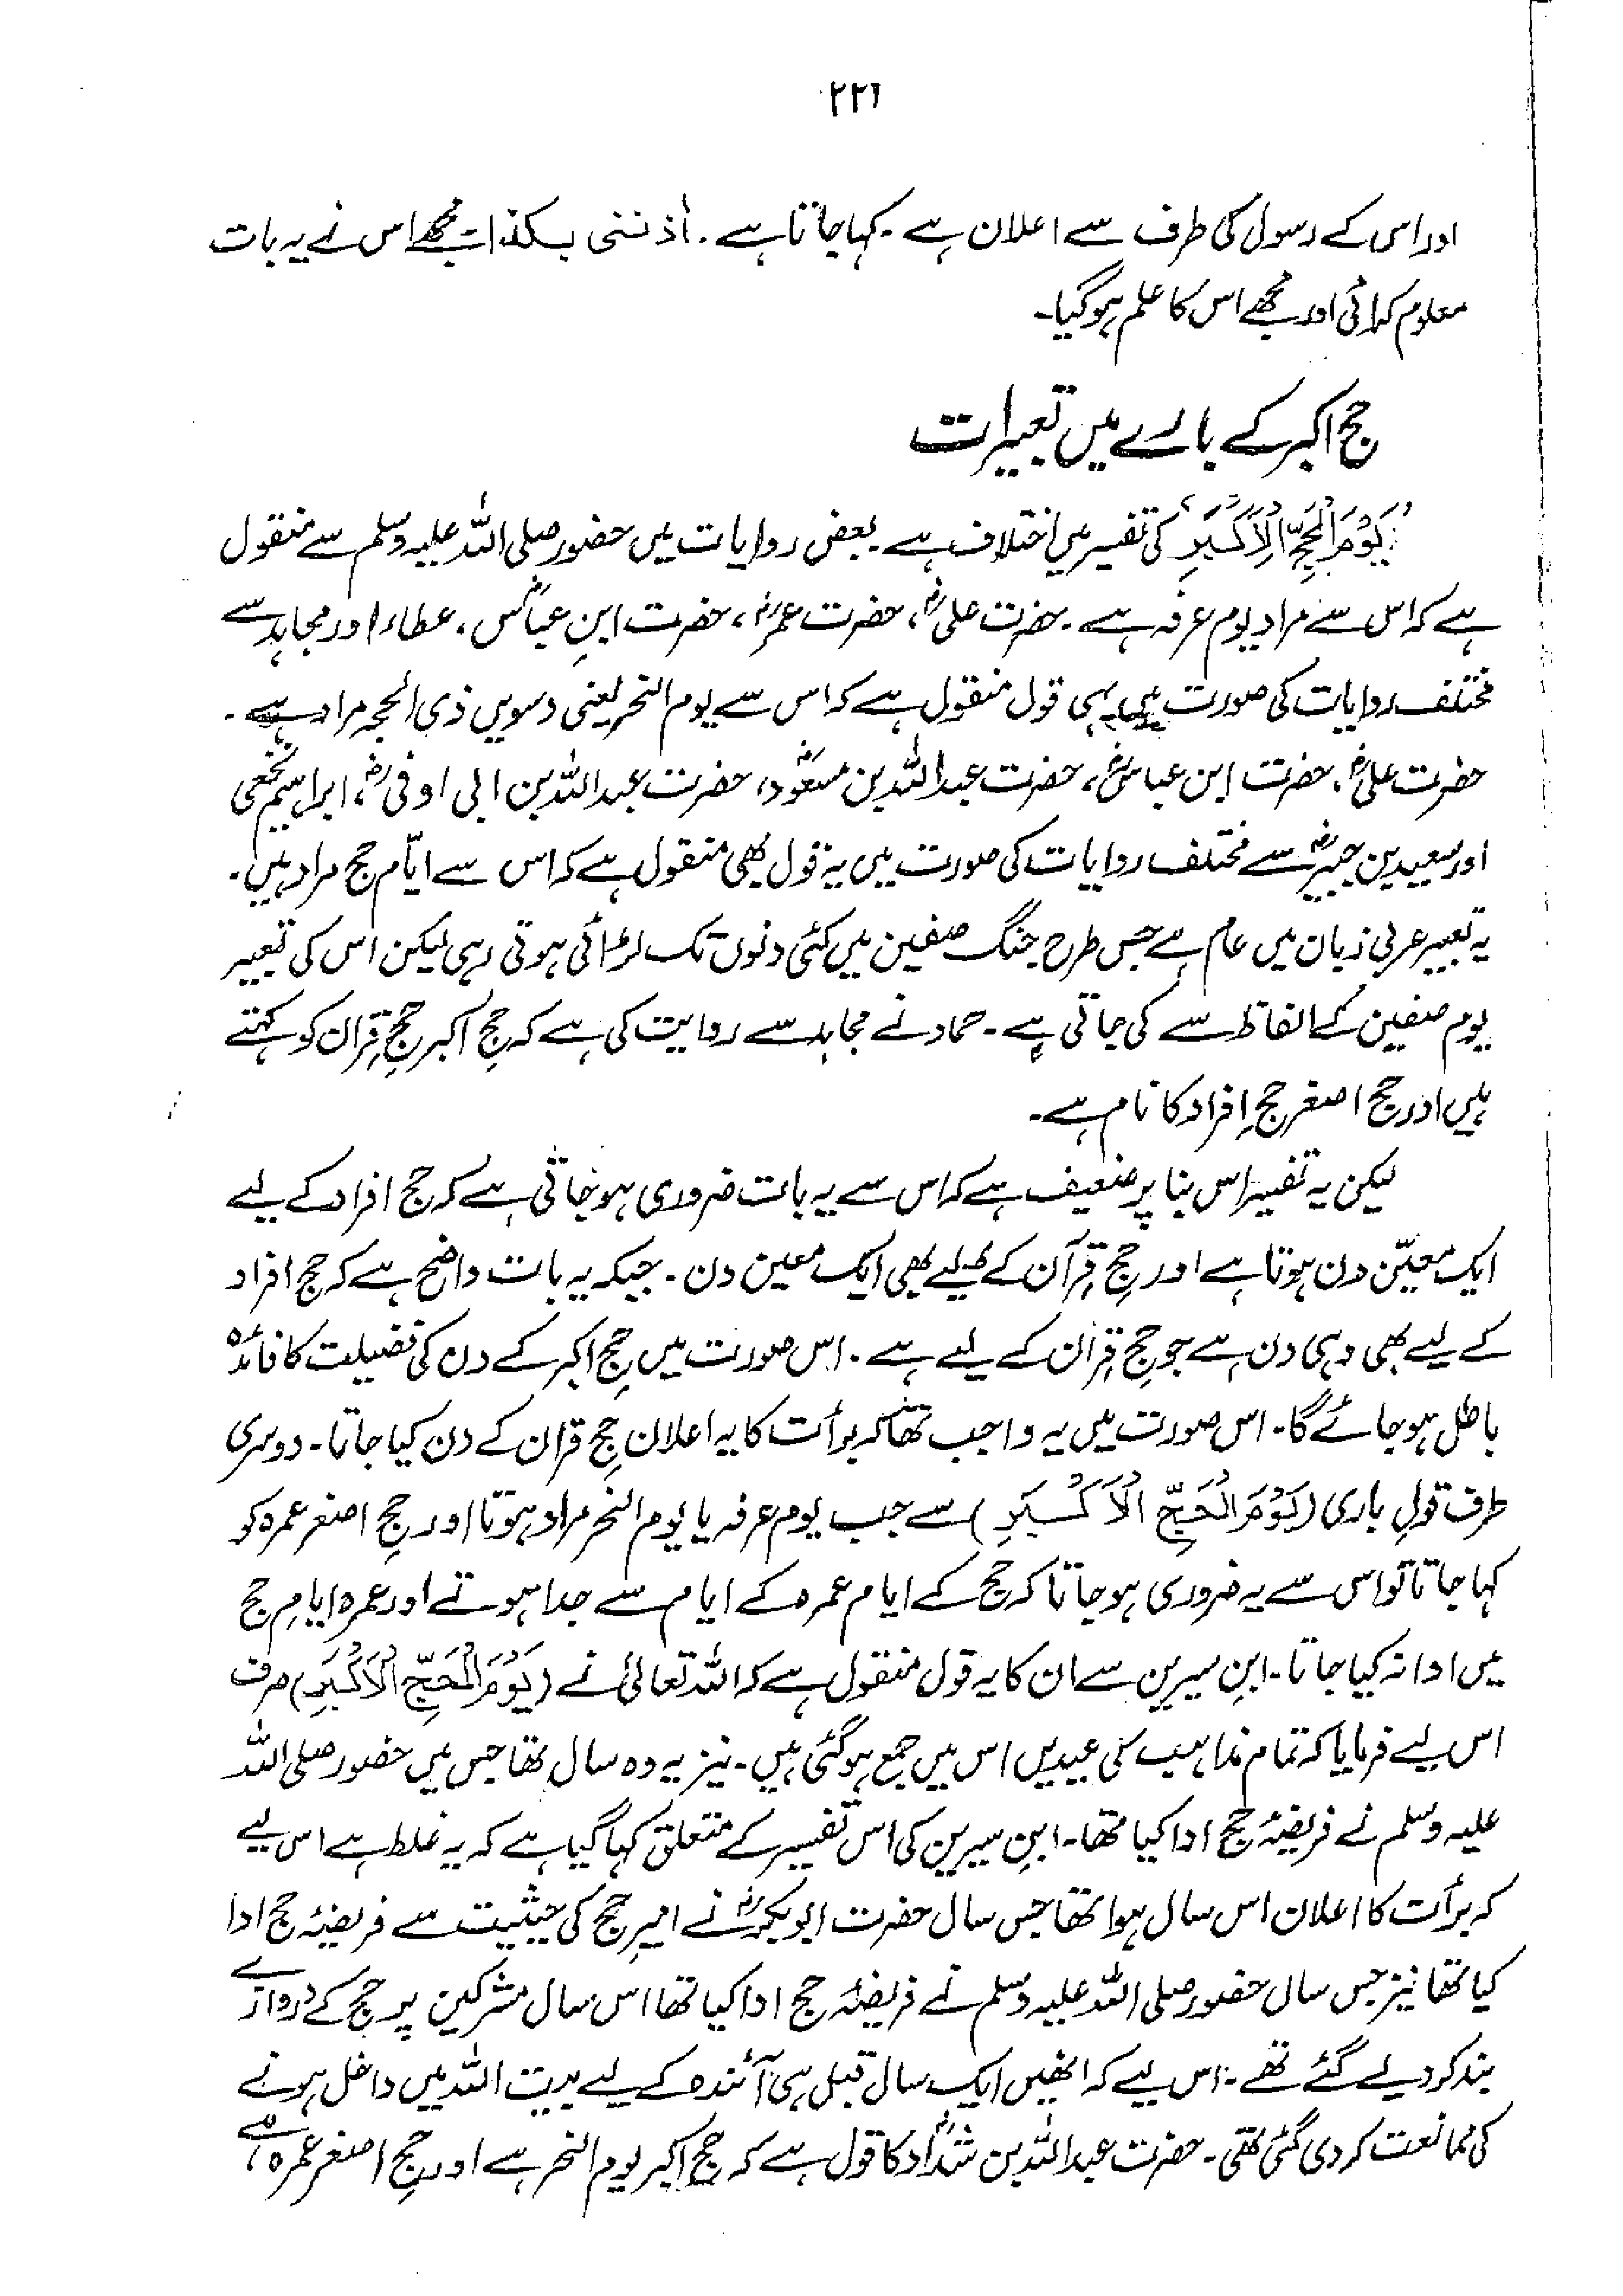 ۲۲۶
اور اس کے رسول کی طرف سے اعلان ہے۔ کہا جاتا ہے۔ أذننی بکذا یعنی مجھے اس نے یہ بات
معلوم کرائی اور مجھے اس کا علم ہو گیا۔
حج اکبر کے بارے میں تعبیرات
"یَوْمَ الْحَجِّ الْاَکْبَرِ" کی تفسیر میں اختلاف ہے۔ بعض روایات میں حضور صلی اللہ علیہ وسلم سے منقول
ہے کہ اس سے مراد یوم عرفہ ہے۔ حضرت علیؓ، حضرت عمرؓ، حضرت ابنِ عباسؓ، عطاء اور مجاہد سے
مختلف روایات کی صورت میں یہی قول منقول ہے کہ اس سے یوم النحر یعنی دسویں ذی الحجہ مراد ہے۔
حضرت علیؓ، حضرت ابن عباسؓ، حضرت عبداللہ بن مسعودؓ، حضرت عبداللہ بن ابی اوفیٰؓ، ابراہیم نخعی
اور سعید بن جبیرؓ سے مختلف روایات کی صورت میں یہ قول بھی منقول ہے کہ اس سے ایّام حج مراد ہیں۔
یہ تعبیر عربی زبان میں عام ہے جس طرح جنگ صفین میں کئی دنوں تک لڑائی ہوتی رہی لیکن اس کی تعبیر
یوم صفین کے الفاظ سے کی جاتی ہے۔ حماد نے مجاہد سے روایت کی ہے کہ حجِ اکبر حجِ قِران کو کہتے
ہیں اور حج اصغر حجِ اِفراد کا نام ہے۔
لیکن یہ تفسیر اس بنا پر ضعیف ہے کہ اس سے یہ بات ضروری ہو جاتی ہے کہ حج افراد کے لیے
ایک معیّن دن ہوتا ہے اور حجِ قِرآن کے لیے بھی ایک معین دن۔ جبکہ یہ بات واضح ہے کہ حج افراد
کے لیے بھی وہی دن ہے جو حجِ قِران کے لیے ہے۔ اس صورت میں حجِ اکبر کے دن کی فضیلت کا فائدہ
باطل ہو جائے گا۔ اس صورت میں یہ واجب تھا کہ برأت کا یہ اعلان حجِ قران کے دن کیا جاتا۔ دوسری
طرف قولِ باری (یَوْمَ الْحَجِّ الْاَکْبَرِ) سے جب یوم عرفہ یا یوم النحر مراد ہوتا اور حجِ اصغر عمرہ کو
کہا جاتا تو اس سے یہ ضروری ہو جاتا کہ حج کے ایام عمرہ کے ایام سے جدا ہوتے اور عمرہ ایامِ حج
میں ادا نہ کیا جاتا۔ ابنِ سیرین سے ان کا یہ قول منقول ہے کہ اللہ تعالیٰ نے (یَوْمَ الْحَجِّ الْاَکْبَرِ) صرف
اس لیے فرمایا کہ تمام مذاہب کی عیدیں اس میں جمع ہو گئی ہیں۔ نیز یہ وہ سال تھا جس میں حضور صلی اللہ
علیہ وسلم نے فریضۂ حج ادا کیا تھا۔ ابنِ سیرین کی اس تفسیر کے متعلق کہا گیا ہے کہ یہ غلط ہے اس لیے
کہ برأت کا اعلان اس سال ہوا تھا جس سال حضرت ابوبکرؓ نے امیرِ حج کی حیثیت سے فریضۂ حج ادا
کیا تھا نیز جس سال حضور صلی اللہ علیہ وسلم نے فریضۂ حج ادا کیا تھا اس سال مشرکین پر حج کے دروازے
بند کر دیے گئے تھے۔ اس لیے کہ انھیں ایک سال قبل ہی آئندہ کے لیے بیت اللہ میں داخل ہونے
کی ممانعت کر دی گئی تھی۔ حضرت عبداللہ بن شدادؓ کا قول ہے کہ حجِ اکبر یوم النحر ہے اور حجِ اصغر عمرہ ہے،